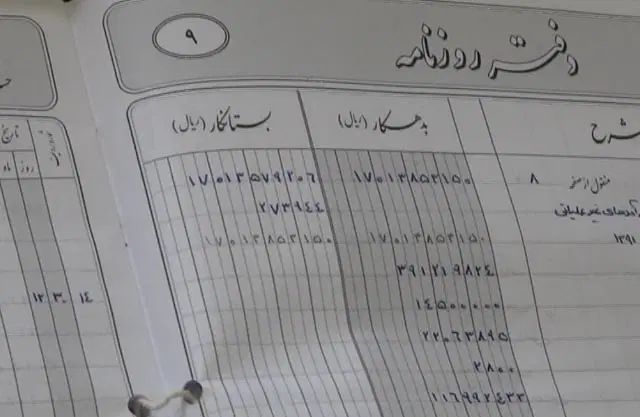 ۹
دفتر روزنامه
شرح بدهکار (ریال) بستانکار (ریال)
تاریخ
روز ماه
منقول از صفحه ۸ ۱۷۰۱۳۸۵۳۱۵۰ ۱۷۰۱۳۵۷۹۲۰۶
درآمدهای غیرعملیاتی ۲۷۳۹۴۴
۱۳۹۱ ۱۷۰۱۳۸۵۳۱۵۰ ۱۷۰۱۳۸۵۳۱۵۰
۳۹۱۲۱۹۸۲۴
۱۴ ۳۰ ۱۲ ۱۴۵۰۰۰۰۰
۲۲۰۶۳۸۹۵
۲۸۰۰
۱۱۶۹۹۲۴۳۳